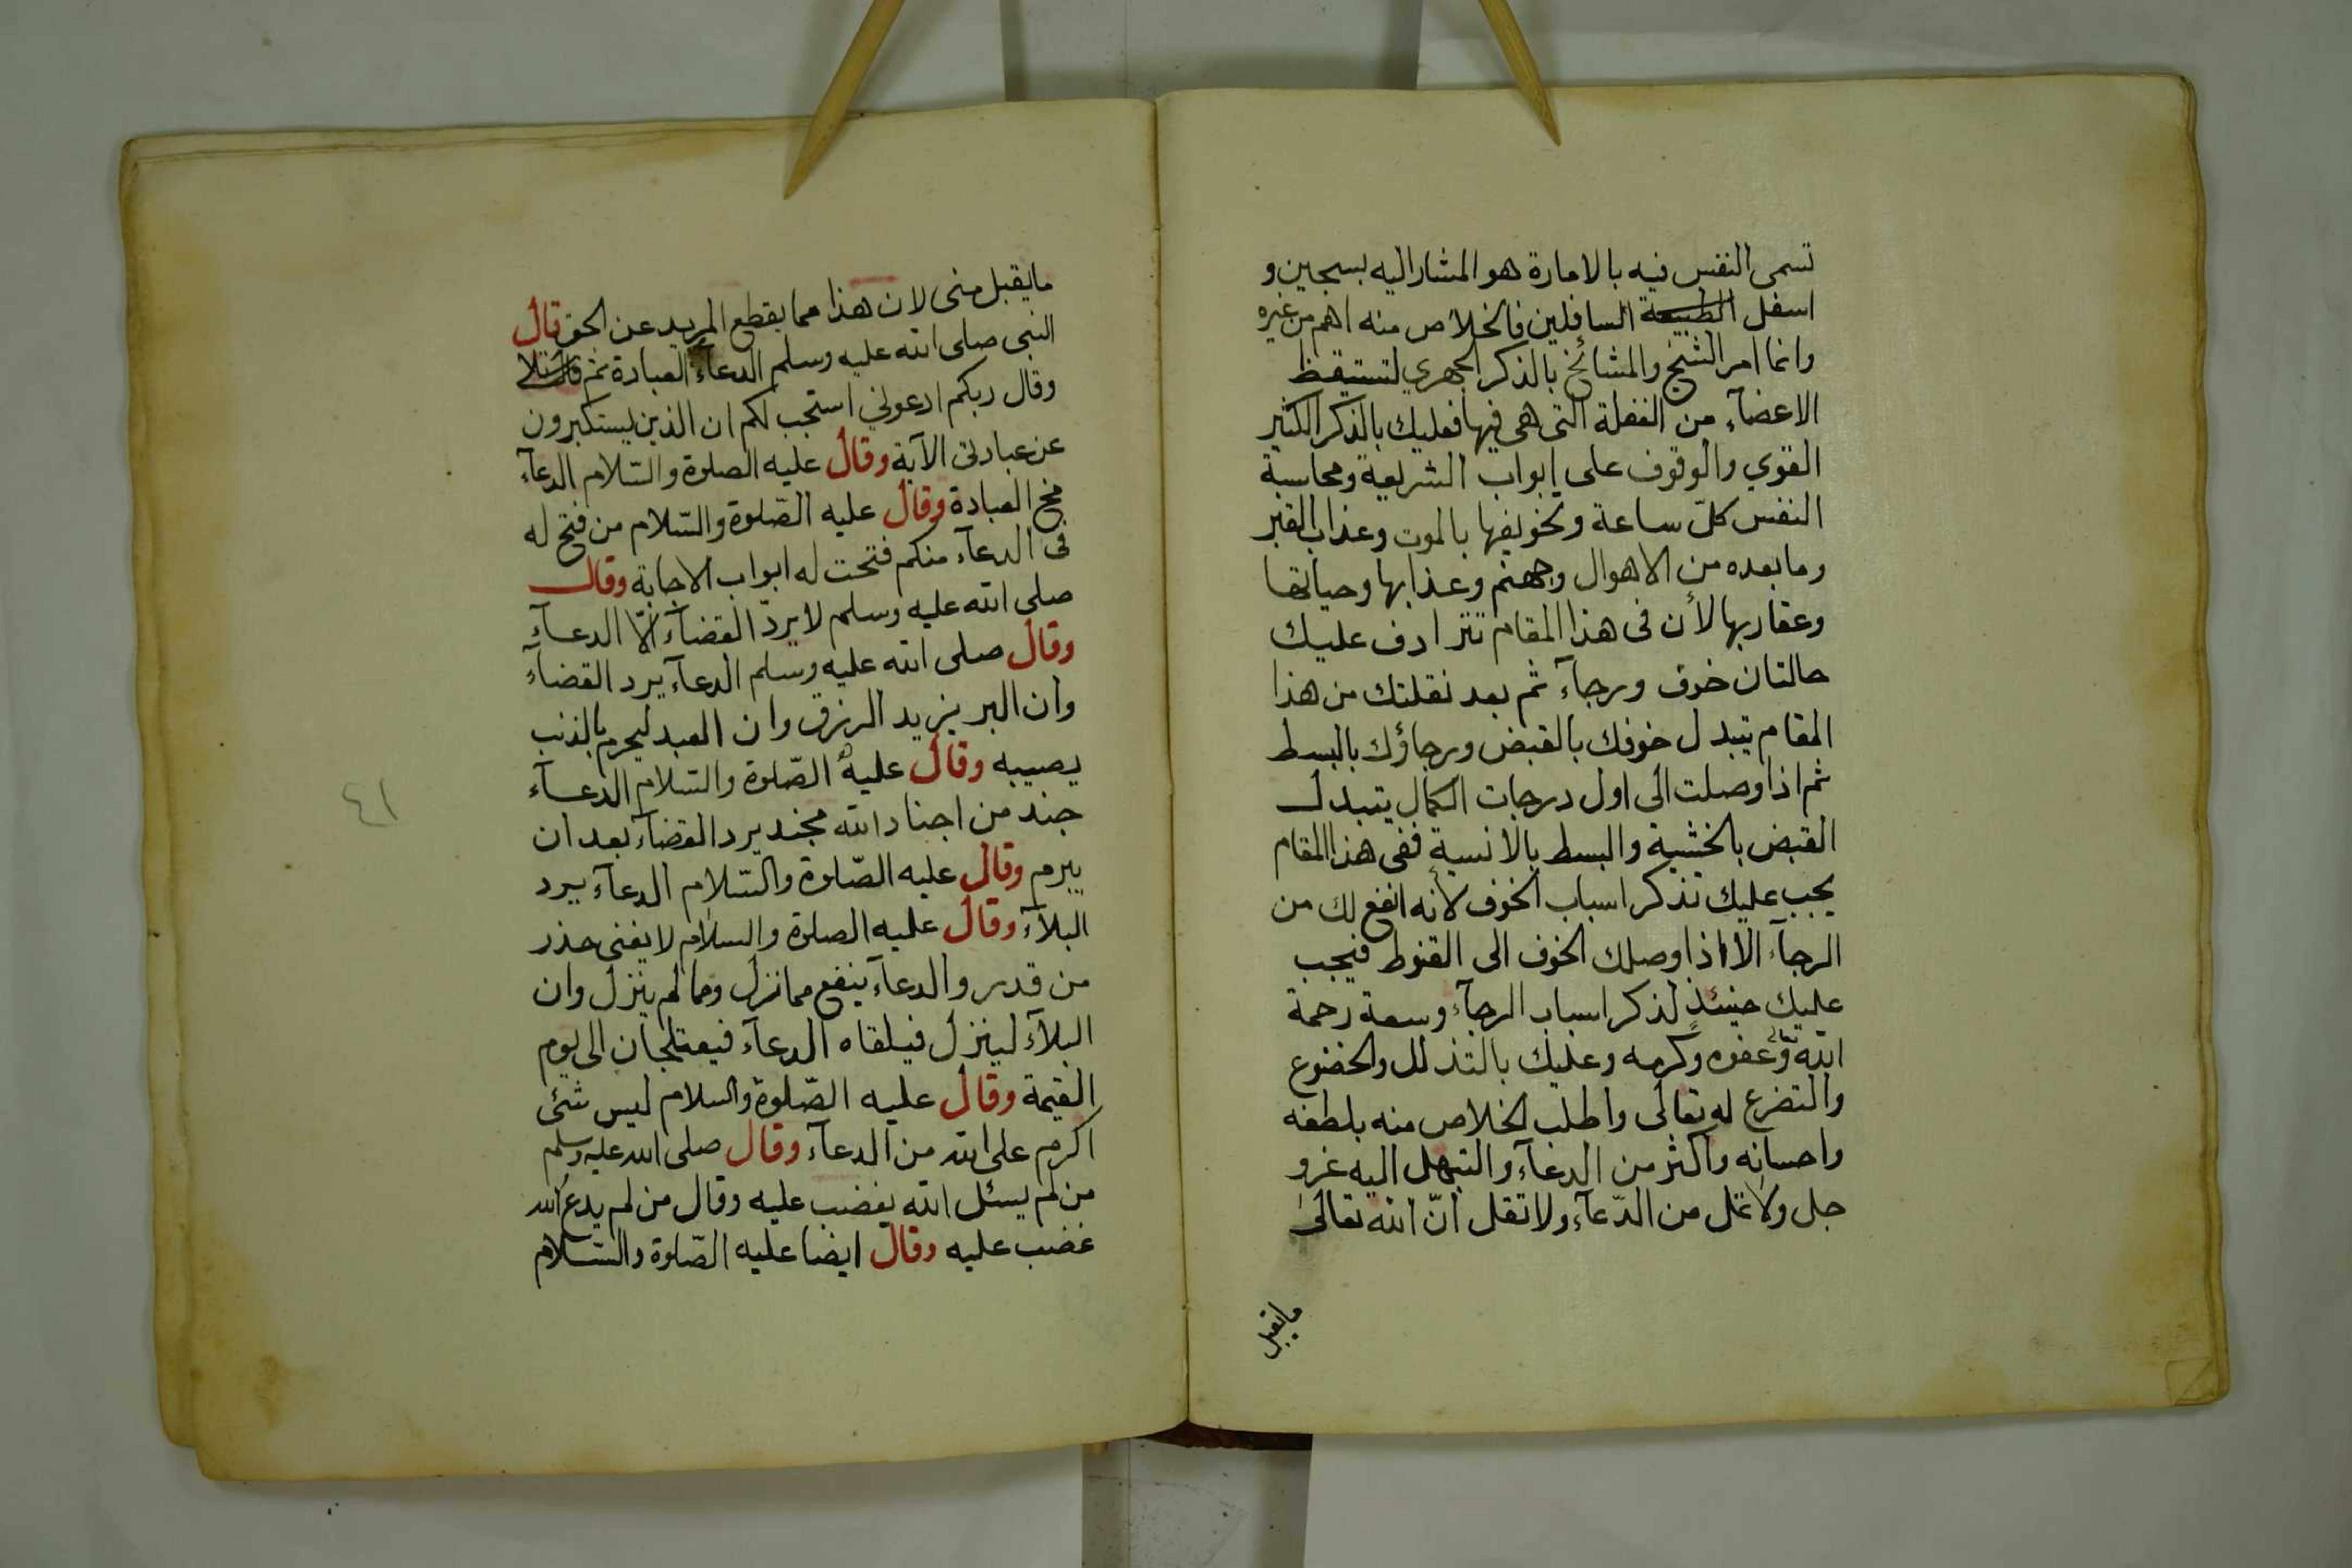 تسمى النفس فيه بالامارة هو المشار اليه بسجين و
اسفل السافلين فالخلاص منه اهم من غيره
وانما امر الشيخ والمشائخ بالذكر الجهري لتستيقظ
الاعضآء من الغفلة التى هى فيها فعليك بالذكر الكثير
القوي والوقوف على ابواب الشريعة ومحاسبة
النفس كلّ ساعة وتخويفها بالموت وعذاب القبر
وما بعده من الاهوال وجهنم وعذابها وحياتها
وعقاربها لأن فى هذا المقام تترادف عليك
حالتان خوف ورجآء ثم بعد نقلتك من هذا
المقام يتبدل خوفك بالقبض ورجاؤك بالبسط
ثم اذا وصلت الى اول درجات الكمال يتبدل
القبض بالخشية والبسط بالانسية ففى هذا المقام
يجب عليك تذكر اسباب الخوف لأنه انفع لك من
الرجآء الا اذا وصلك الخوف الى القنوط فيجب
عليك حينئذٍ لذكر اسباب الرجآء وسعة رحمة
الله وعفوه وكرمه وعليك بالتذلل والخضوع
والتضرع له تعالى واطلب الخلاص منه بلطفه
واحسانه واكثر من الدعآء والتبهل اليه عز و
جل ولا تمل من الدّعآء ولا تقل انّ الله تعالى
ما يقبل
ما يقبل منى لان هذا مما يقطع المريد عن الحق قال
النبى صلى الله عليه وسلم الدعآء العبادة ثم تلا
وقال ربكم ادعوني استجب لكم ان الذين يستكبرون
عن عبادتى الآية وقال عليه الصلوة والسّلام الدعآء
مخ العبادة وقال عليه الصّلوة والسّلام من فتح له
فى الدعآء منكم فتحت له ابواب الاجابة وقال
صلى الله عليه وسلم لا يردّ القضآء الّا الدعآء
وقال صلى الله عليه وسلم الدعآء يرد القضآء
وان البر يزيد الرزق وان العبد ليحرم بالذنب
يصيبه وقال عليه الصّلوة والسّلام الدعآء
جند من اجناد الله مجند يرد القضآء بعد ان
يبرم وقال عليه الصّلوة والسّلام الدعآء يرد
البلآء وقال عليه الصلوة والسلام لا يغنى حذر
من قدر والدعآء ينفع مما نزل ومما لم ينزل وان
البلآء لينزل فيلقاه الدعآء فيعتلجان الى يوم
القيمة وقال عليه الصّلوة والسلام ليس شئ
اكرم على الله من الدعآء وقال صلى الله عليه وسلم
من لم يسئل الله يغضب عليه وقال من لم يدع الله
غضب عليه وقال ايضا عليه الصّلوة والسّلام
٤١